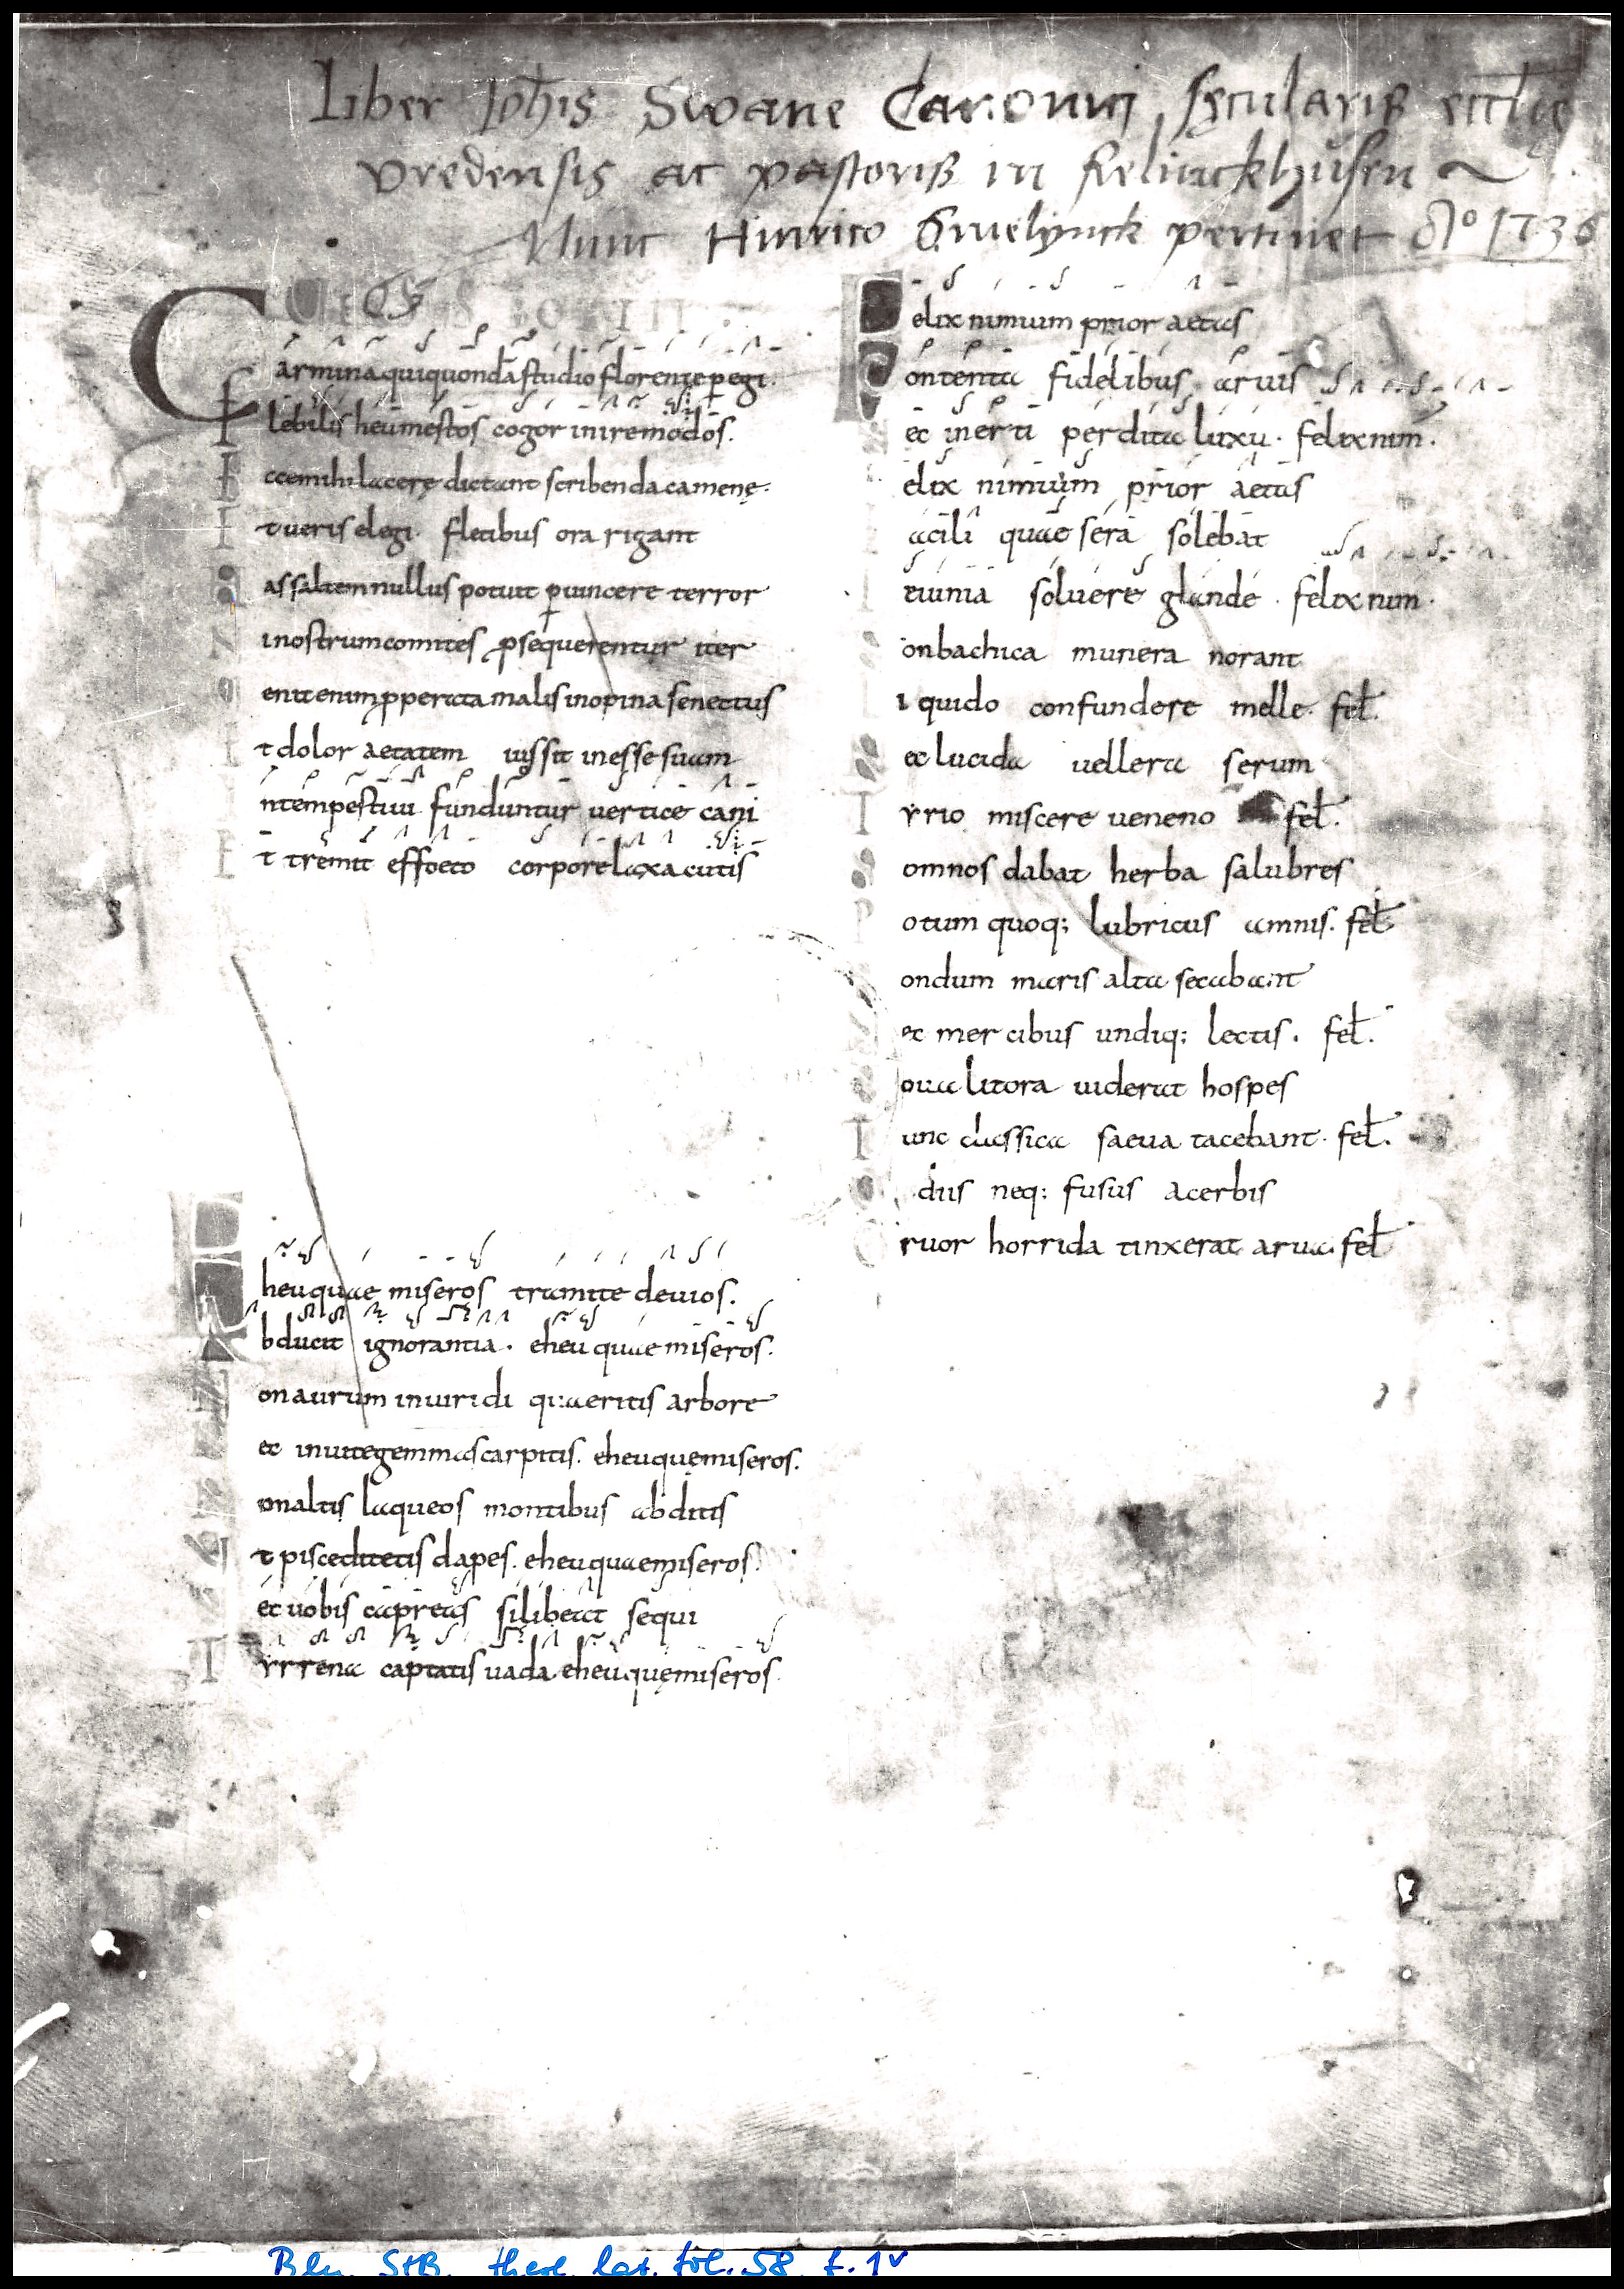 Liber Joh̅is Swane Canonici sęcularis eccl̅ie
vredensis ac pastoris in Relinckhusen
Nunc Hinrico Gruelijnck pertinet Aº 1536
C
armina qui quondā studio florente pegi.
F lebilis heu mestos cogor inire modos.
E ccemihi lacerę dictant scribenda camenę.
E t ueris elegi fletibus ora rigant
as saltem nullus potuit puincere terror
N i nostrum comites psequerentur iter
enit enim pperata malis inopina senectus
E t dolor aetatem iussit inesse suam
I ntempestiui funduntur uertice cani
E t tremit effoeto corpore laxa cutis
E heu quae miseros tramite deuios.
A bducit ignorantia. eheu quae miseros.
on aurum in uiridi quaeritis arbore
ec in uite gemmas carpitis. eheu quę miseros.
on altis laqueos montibus abditis
t pisce ditetis dapes. eheu quae miseros.
ec uobis capreas si libeat sequi
T yrrena captatis uada. eheu quę miseros.
F elix nimium prior aetas
C ontenta fidelibus aruis
ec inerti perdita luxu. felix nim.
elix nimium prior aetas
acili quae sera solebat
eiunia soluere glande. felix nim.
on bachica munera norant
iquido confundere melle. fel̅.
N ec lucida uellera serum
T yrio miscere ueneno fel̅.
S omnos dabat herba salubres
P otum quoq; lubricus amnis. fel̅
ondum maris alta secabant
ec mercibus undiq; lectis. fel̅.
oua litora uiderat hospes
T unc classica saeua tacebant. fel̅.
O diis neq; fusus acerbis
C ruor horrida tinxerat arua fel̅
Bln. StB. theol. lat. fol. 58 f. 1v